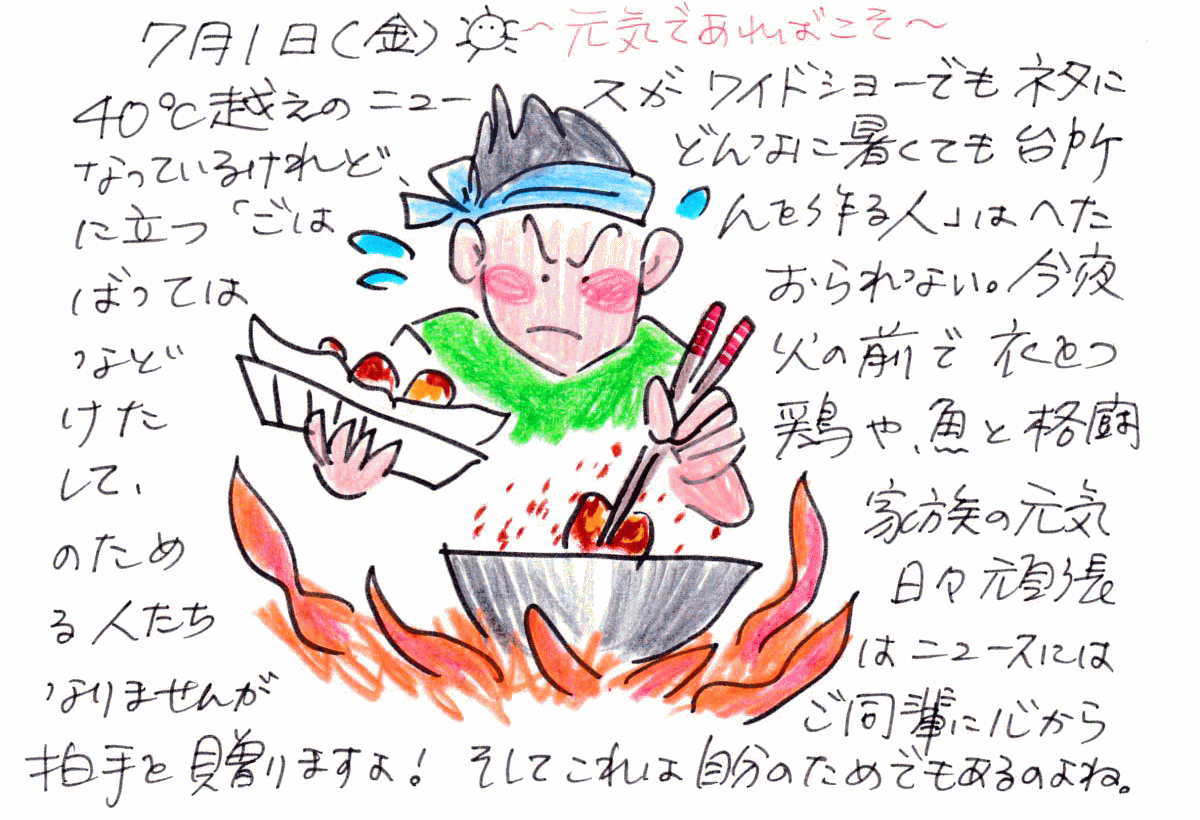 7月1日(金) ～元気であればこそ～
40℃越えのニュースが ワイドショーでも ネタに
なっているけれど、どんなに暑くても台所
に立つ「ごはんを作る人」はへた
ばっては おられない。今夜
など 火の前で 衣をつ
けた 鶏や、魚と格闘
して、家族の元気
のため 日々頑張
る人たち はニュースには
なりませんが ご同輩に心から
拍手を贈りますよ! そしてこれは自分のためでもあるのよね。